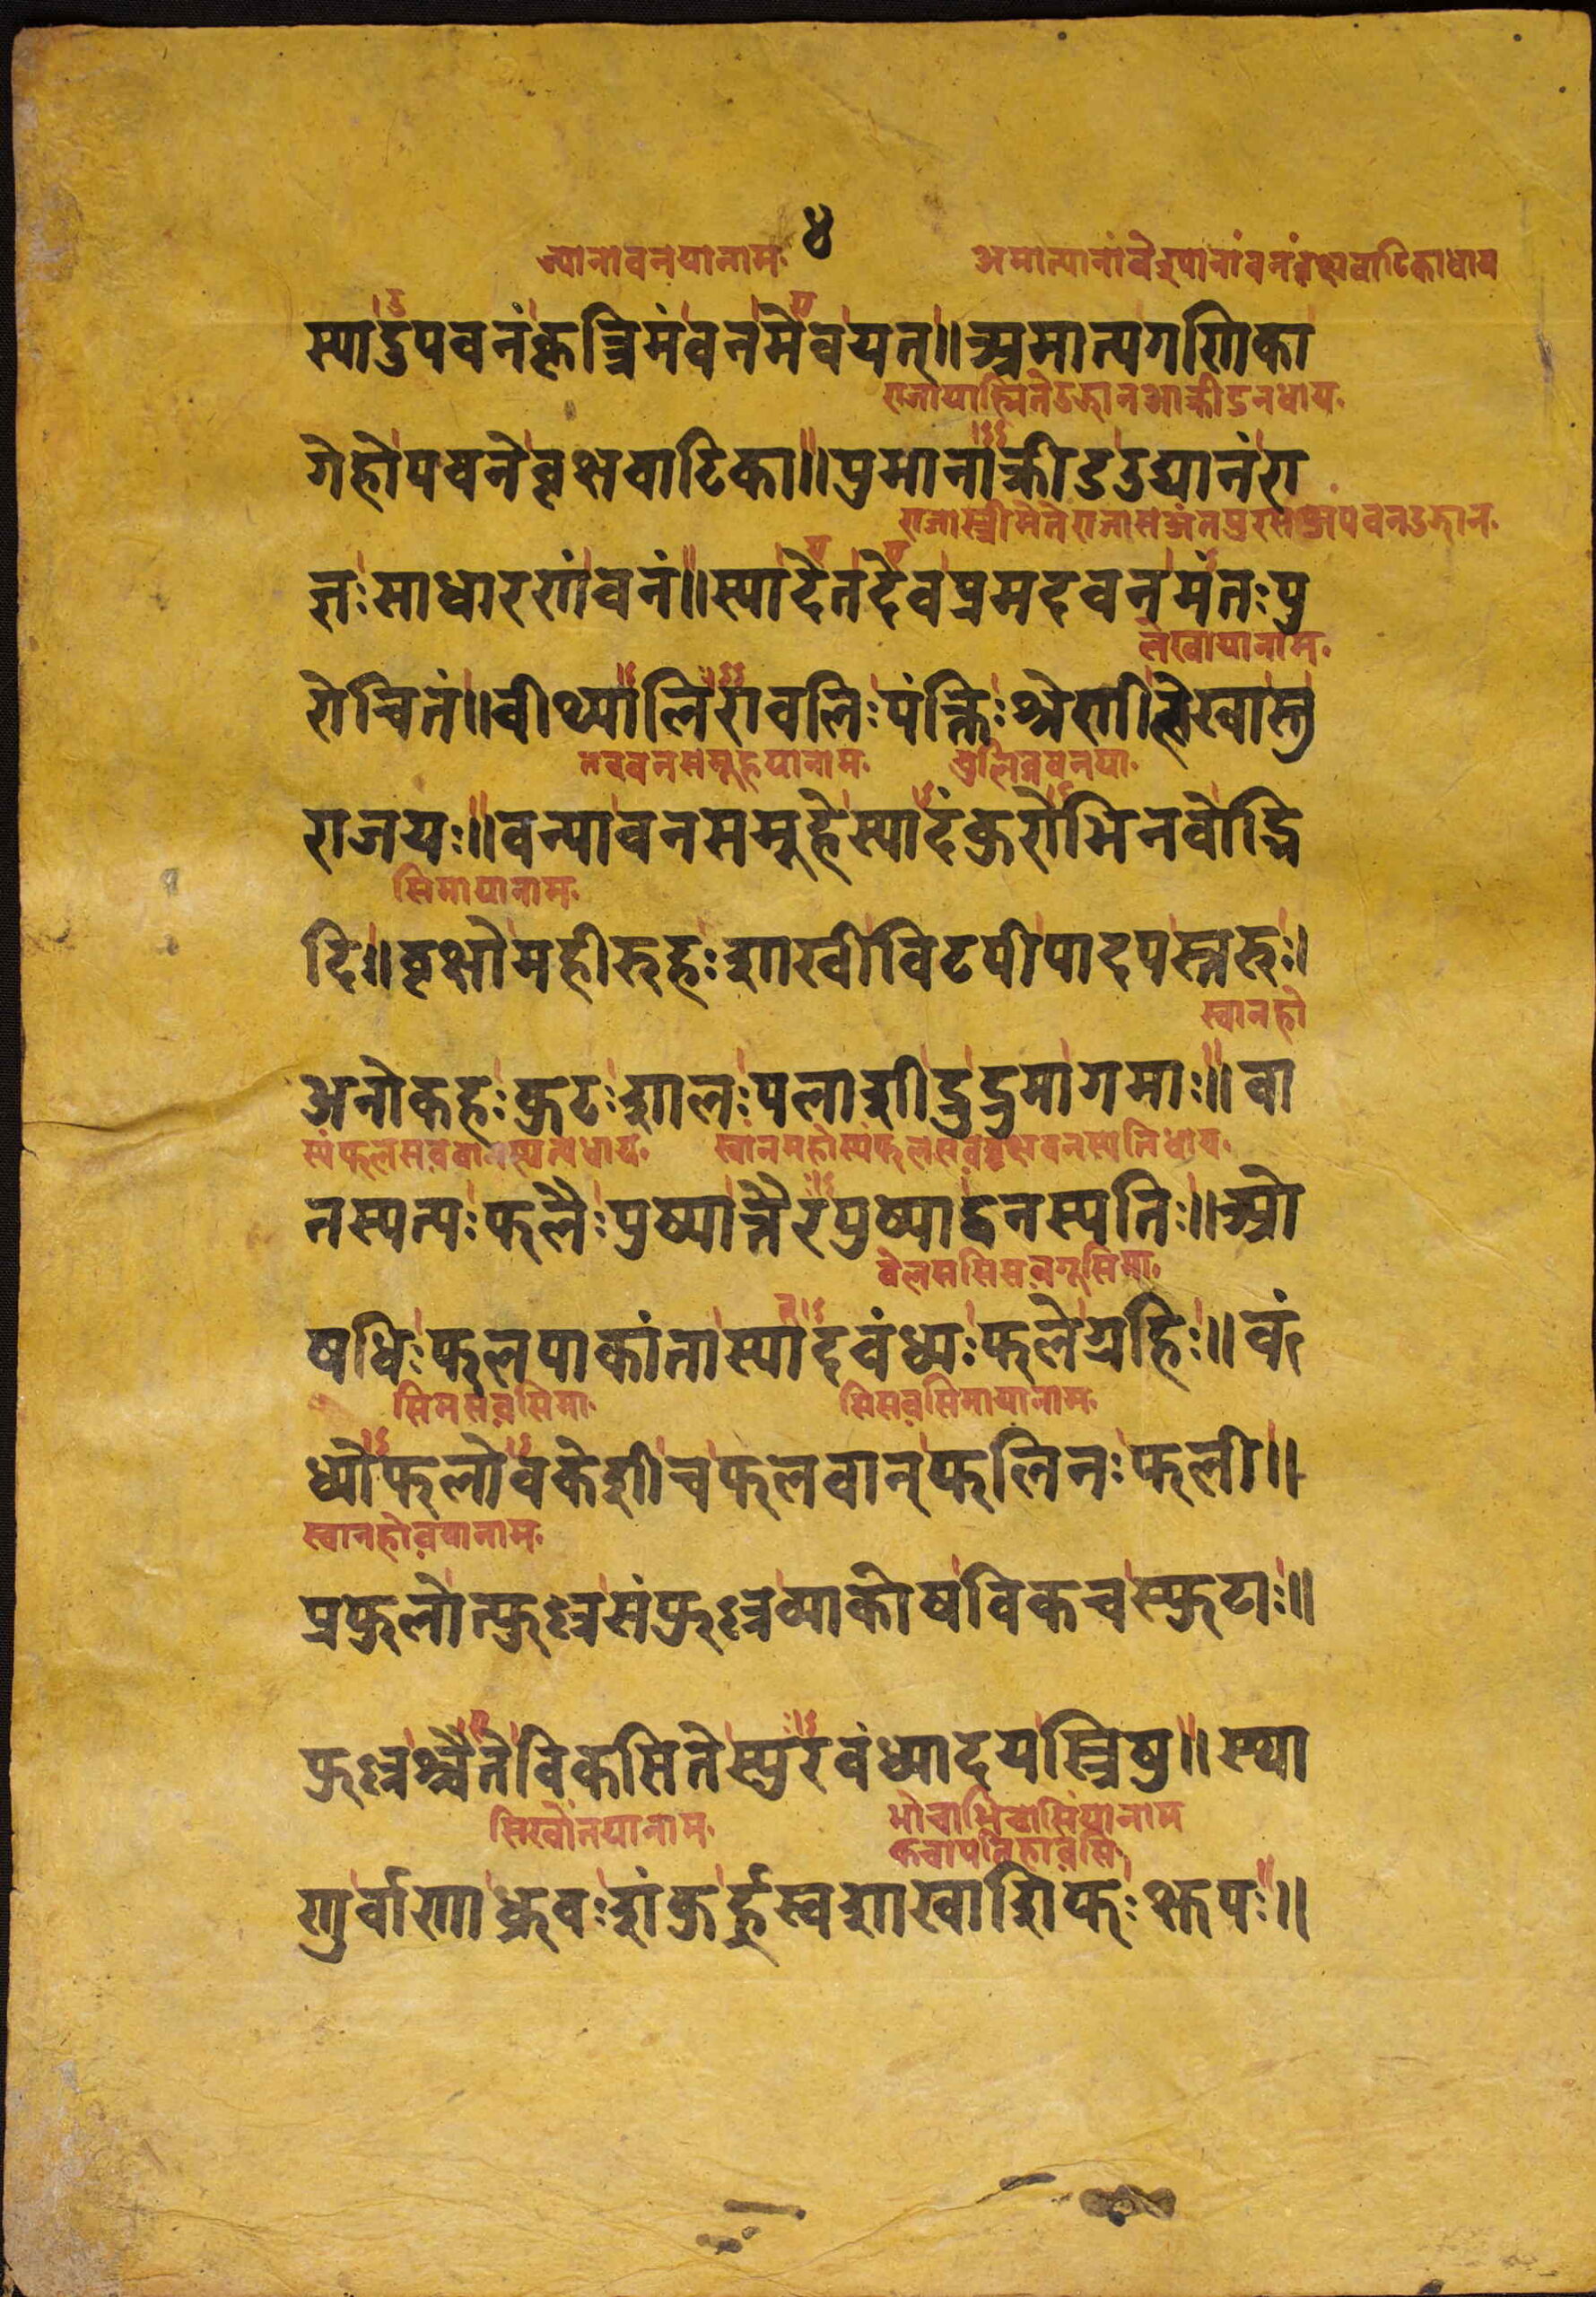 ४
ज्यानावनयानाम
स्यादुपवनंकृत्रिमंवनमेवयत्॥अमात्यगणिका
गेहोपवनेवृक्षवाटिका॥पुमानाक्रीडउद्यानंरा
ज्ञःसाधारणंवनं॥स्यादेतदेवप्रमदवनमंतःपु
लेखायानाम
रोचितं॥वीथ्यालिरावलिःपंक्तिःश्रेणीलेखास्तु
नववनसमूहयानाम
राजयः॥वन्यावनसमुहेस्यादंकुरोभिनवोद्भि
सिमायानाम
दि॥वृक्षोमहीरुहःशाखीविटपीपादपस्तरुः॥
स्वानहो
अनोकहःकुटःशालःपलाशीद्रुद्रुमागमाः॥वा
नस्पत्यःफलैःपुष्पात्तैरपुष्पाद्वनस्पतिः॥ओ
षधिःफलपाकांतास्यादवंध्यःफलेग्रहिः॥वं
सिमसवसिमा सिसवसिमायानाम
ध्योफलोवकेशीचफलवान्फलिनःफली॥
स्वानहोवयानाम
प्रफुलोत्फुल्लसंफुल्लव्याकोषविकचस्फुटाः॥
फुल्लश्चैतेविकसितेस्युरवंध्यादयस्त्रिषु॥स्था
णुर्वाणाध्रुवःशंकुर्ह्रस्वशाखाशिफःक्षुपः॥